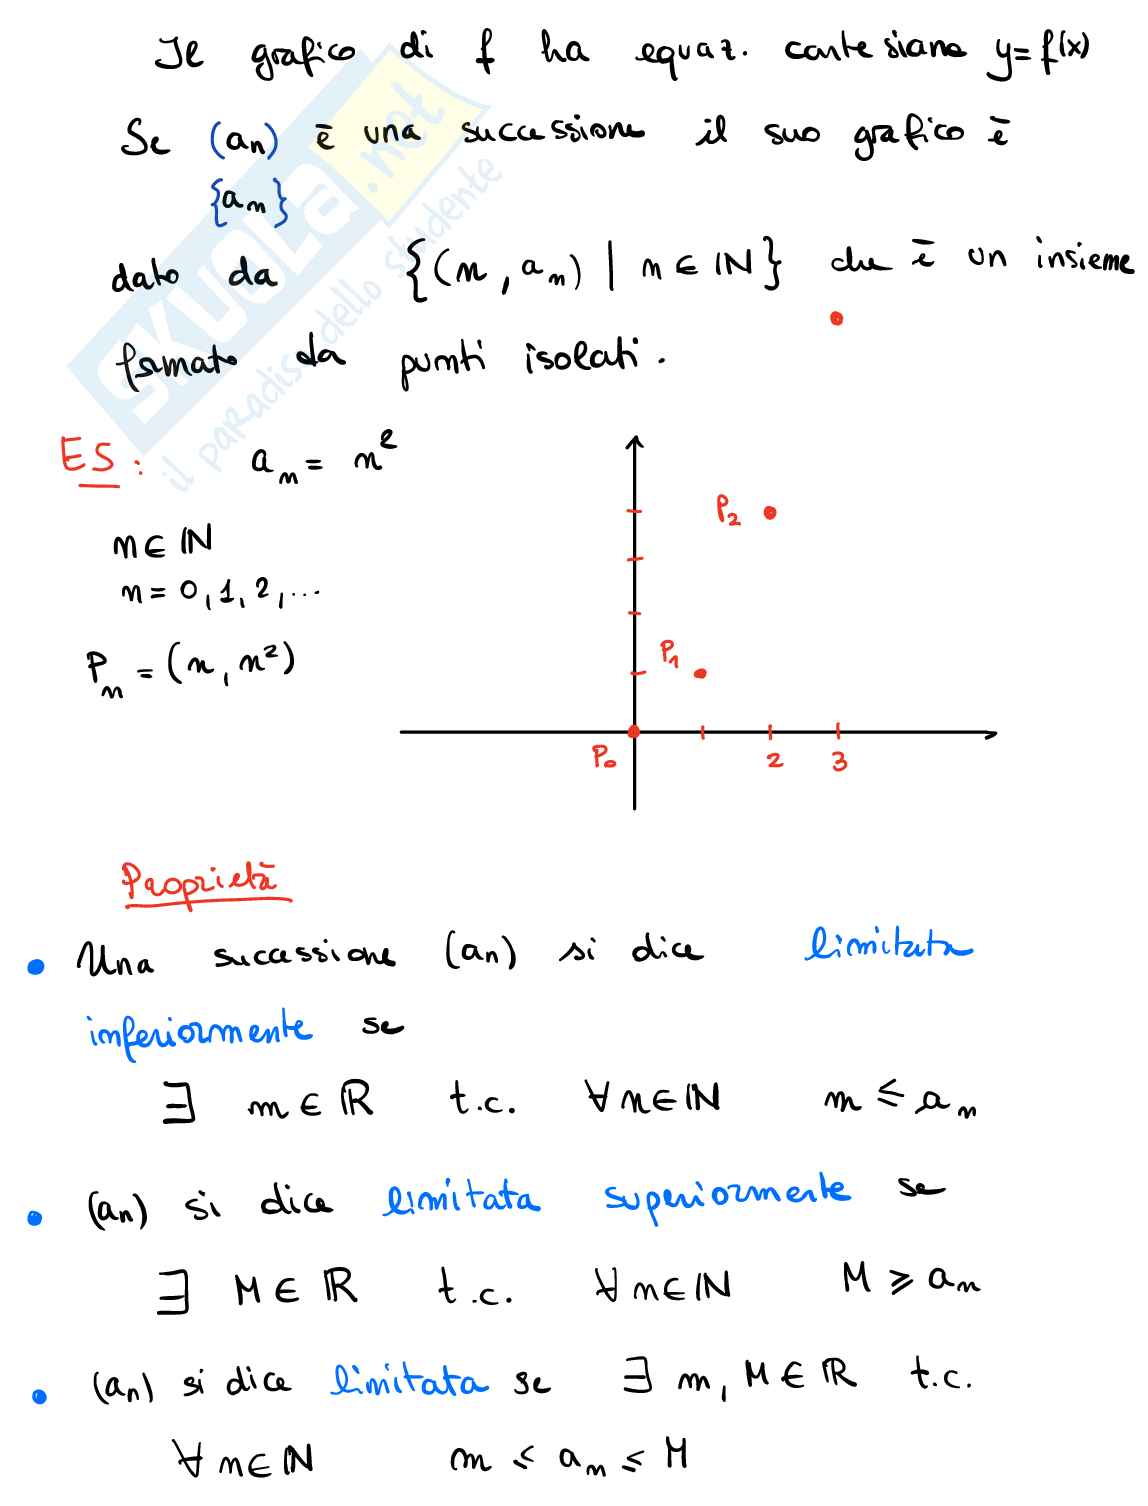 Il grafico di f ha equaz. cartesiana y=f(x)
Se (an) è una successione il suo grafico è
{an}
dato da {(n, an) | n ∈ ℕ} che è un insieme
formato da punti isolati.
ES: an = n²
n ∈ ℕ
n = 0, 1, 2, ...
Pn = (n, n²)
P2
P1
P0
2 3
Proprietà
• Una successione (an) si dice limitata
inferiormente se
∃ m ∈ ℝ t.c. ∀ n ∈ ℕ m ≤ an
• (an) si dice limitata superiormente se
∃ M ∈ ℝ t.c. ∀ n ∈ ℕ M ≥ an
• (an) si dice limitata se ∃ m, M ∈ ℝ t.c.
∀ n ∈ ℕ m ≤ an ≤ M
SKUOLA.net
il paradiso dello studente